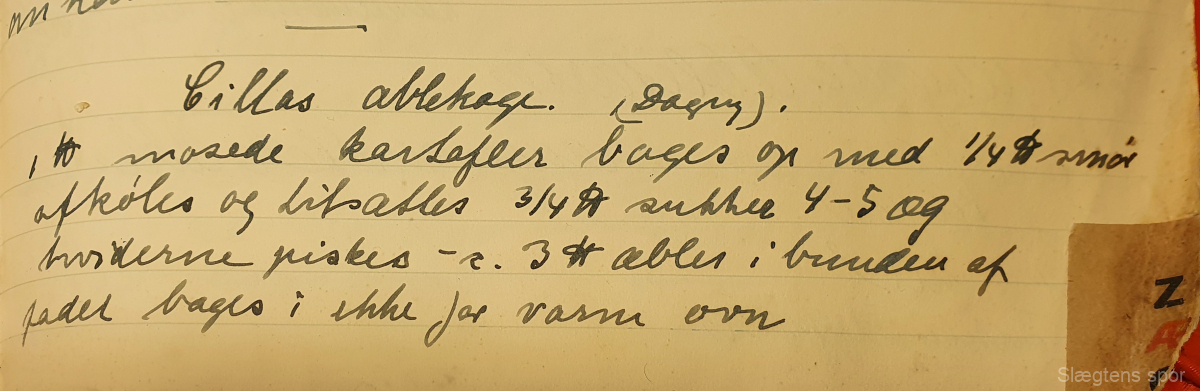 Cillas æblekage. (Dagny).
1 ℔ mosede kartofler bages op med 1/4 ℔ smør
afkøles og tilsættes 3/4 ℔ sukker 4-5 æg
hviderne piskes - c. 3 ℔ æbler i bunden af
fadet bages i ikke for varm ovn
Z
Æ
Slægtens spor